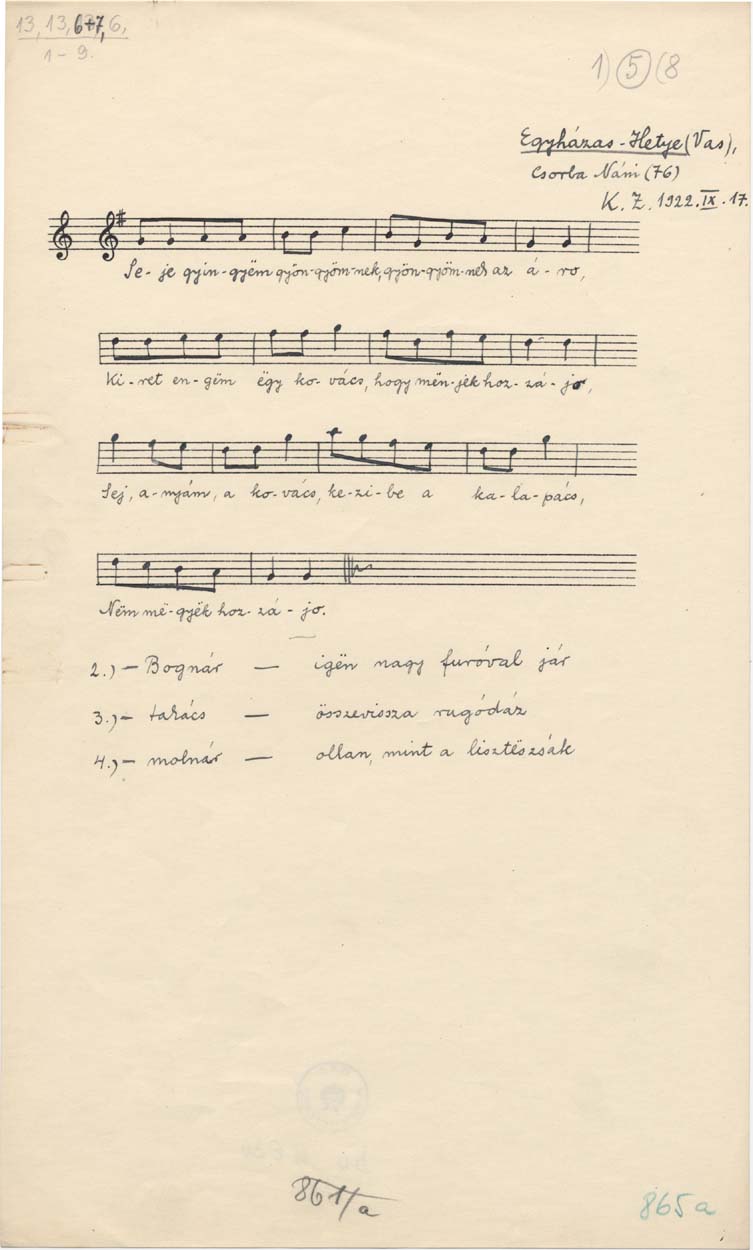 13, 13, 6+7, 6,
1 - 9.
1) 5 (8
Egyházas-Hetye (Vas),
Csorba Náni (76)
K. Z. 1922. IX. 17.
Se- je gyin- gyëm gyön-gyöm-nek, gyön-gyöm-nek az á - ro,
Ki- ret en- gëm ëgy ko- vács, hogy mën-jek hoz- zá- jo,
Sej, a- nyám, a ko- vács, ke- zi- be a ka- la- pács,
Nëm më- gyëk hoz- zá - jo.
2.) — Bognár — igën nagy furóval jár
3.) — takács — összevissza rugódáz
4.) — molnár — ollan, mint a lisztëszsák
861/a
865a